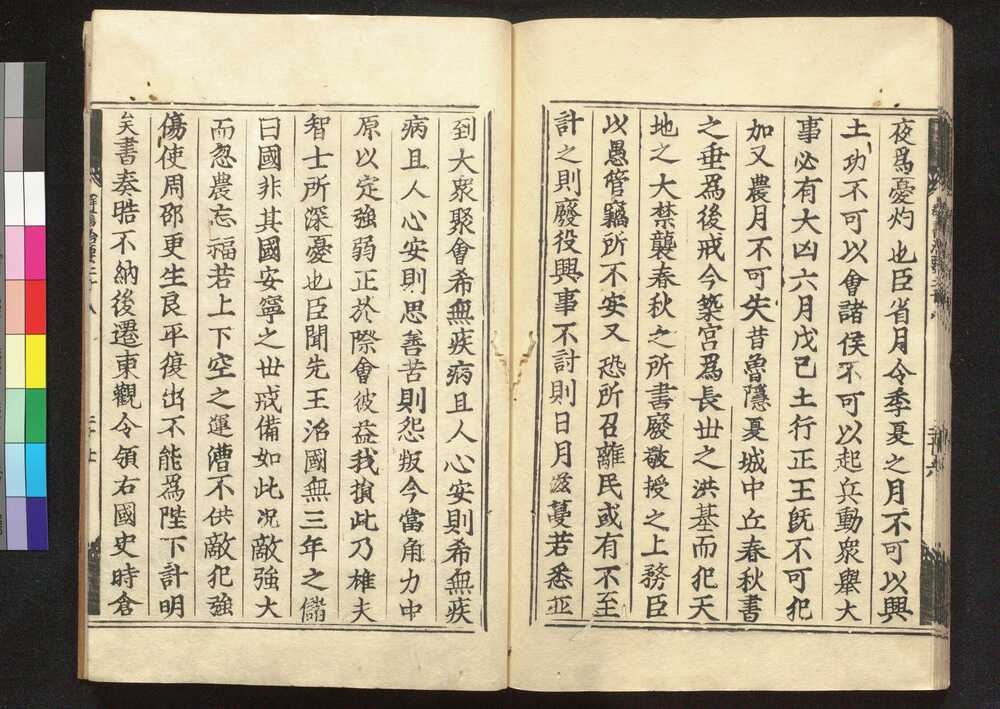 夜爲憂灼也臣省月令季夏之月不可以興
土功不可以會諸侯不可以起兵動衆舉大
事必有大凶六月戊己土行正王旣不可犯
加又農月不可失昔魯隱夏城中丘春秋書
之垂爲後戒今築宮爲長世之洪基而犯天
地之大禁襲春秋之所書廢敬授之上務臣
以愚管竊所不安又恐所召離民或有不至
計之則廢役興事不討則日月滋蔓若悉並
到大衆聚會希無疾病且人心安則希無疾
病且人心安則思善苦則怨叛今當角力中
原以定強弱正於際會彼益我損此乃雄夫
智士所深憂也臣聞先王治國無三年之儲
曰國非其國安寧之世戒備如此况敵強大
而忽農忘福若上下空乏運漕不供敵犯強
傷使周邵更生良平復出不能爲陛下計明
矣書奏晧不納後遷東觀令領右國史時倉